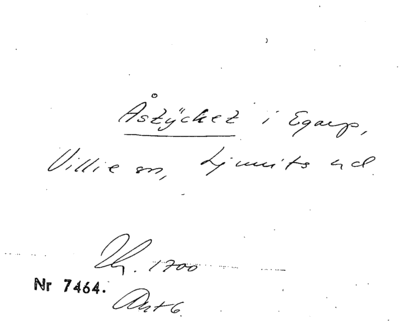 Åstycket i Egarp,
Villie sn, Ljunits hd.
1700
Nr 7464.